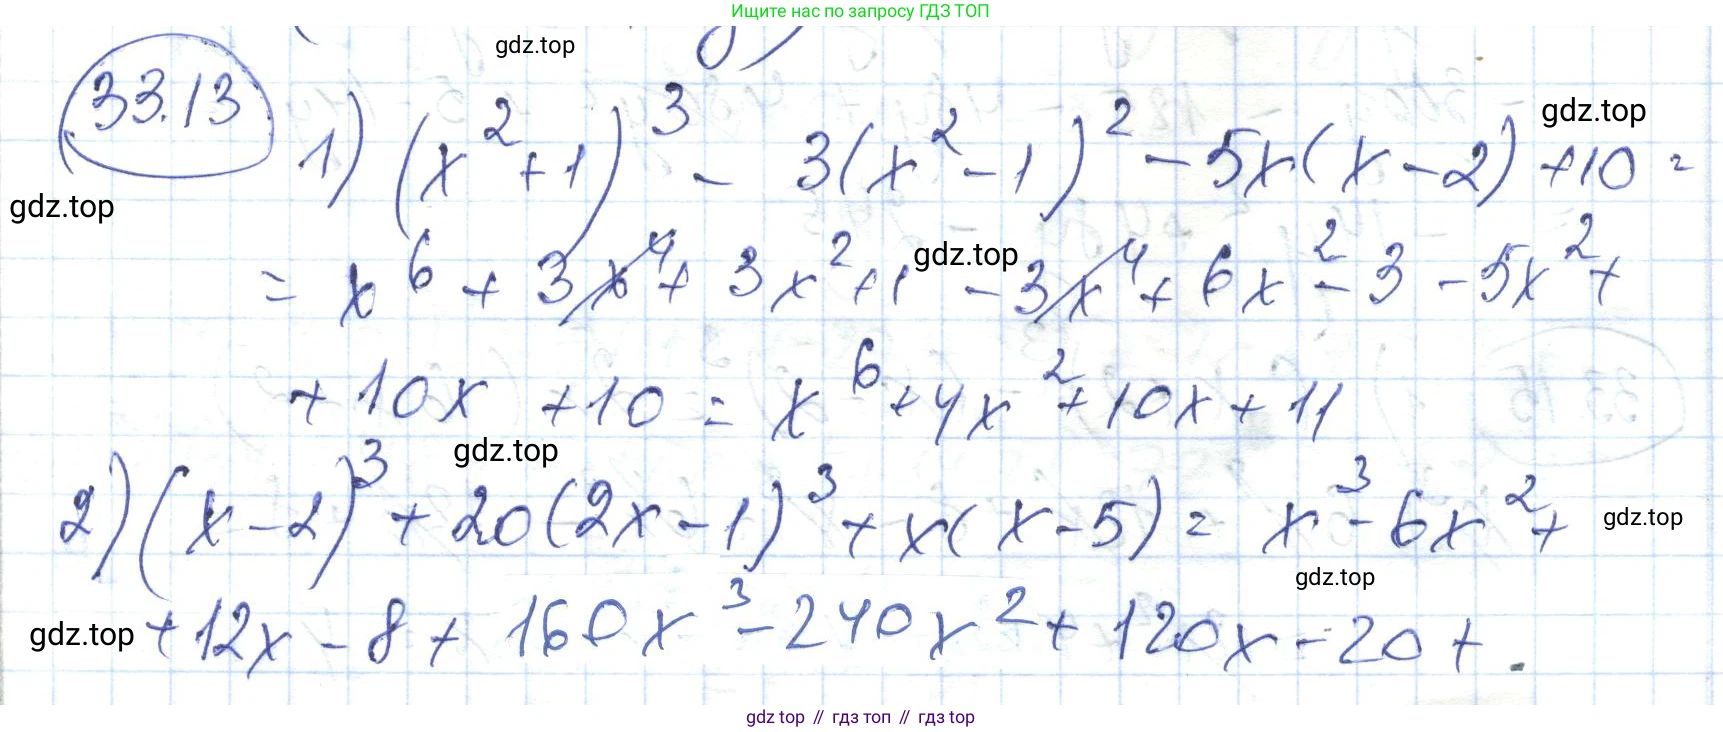 Ищите нас по запросу ГДЗ ТОП
gdz.top
33.13
gdz.top
1) (x² + 1)³ - 3(x² - 1)² - 5x(x - 2) + 10 =
gdz.top
= x⁶ + 3x⁴ + 3x² + 1 - 3x⁴ + 6x² - 3 - 5x² +
gdz.top
+ 10x + 10 = x⁶ + 4x² + 10x + 11
gdz.top
2) (x - 2)³ + 20(2x - 1)³ + x(x - 5) = x³ - 6x² +
gdz.top
gdz.top
gdz.top
+ 12x - 8 + 160x³ - 240x² + 120x - 20 +
gdz top // гдз топ // gdz top